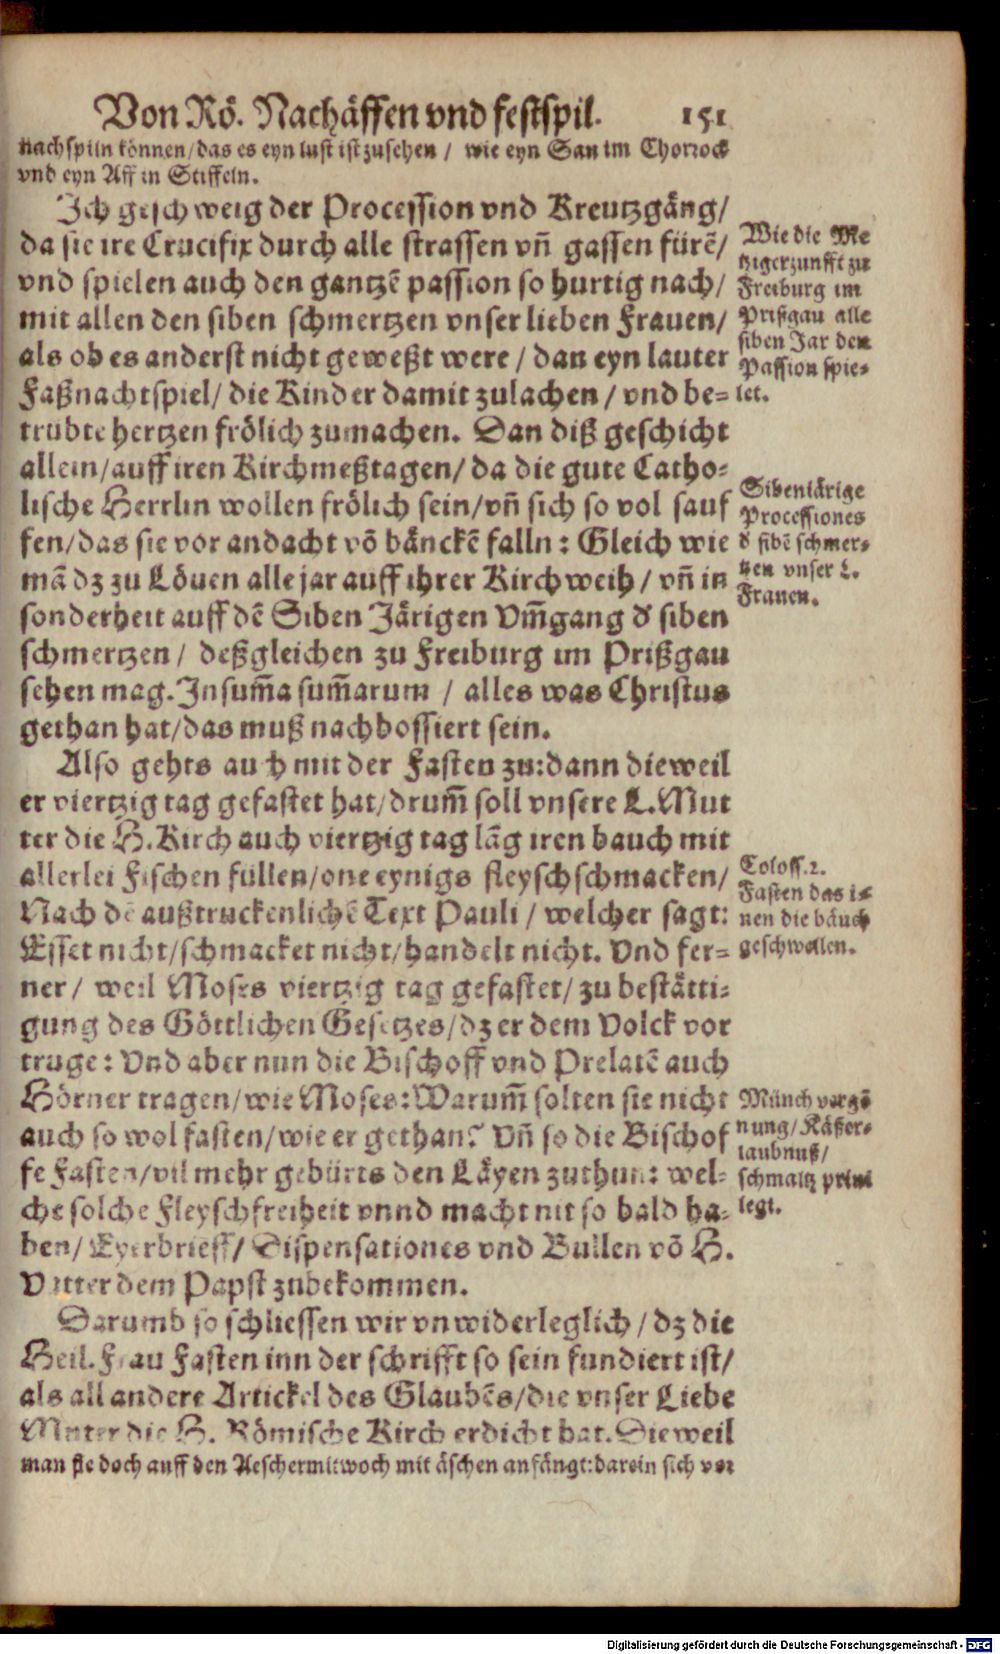 Von Rö. Nachäffen vnd festspil. 151
nachspiln können/das es eyn lust ist zusehen / wie eyn Sau im Chorrock
vnd eyn Aff in Stiffeln.
Ich geschweig der Procession vnd Kreutzgäng/
da sie ire Crucifix durch alle strassen vñ gassen fürẽ/
vnd spielen auch den gantzẽ passion so hurtig nach/
mit allen den siben schmertzen vnser lieben Frauen/
als ob es anderst nicht geweßt were / dan eyn lauter
Faßnachtspiel/ die Kinder damit zulachen / vnd be-
trübte hertzen frölich zumachen. Dan diß geschicht
allein/auff iren Kirchmeßtagen/ da die gute Catho-
lische Herrlin wollen frölich sein/vñ sich so vol sauf
fen/das sie vor andacht võ bänckẽ falln : Gleich wie
mã dz zu Löuen alle jar auff ihrer Kirchweih / vñ in
sonderheit auff dẽ Siben Järigen Vm̃gang d' siben
schmertzen / deßgleichen zu Freiburg im Prißgau
sehen mag. In sum̃a sum̃arum / alles was Christus
gethan hat/das muß nachbossiert sein.
Also gehts auch mit der Fasten zu:dann dieweil
er viertzig tag gefastet hat/drum̃ soll vnsere L.Mut
ter die H.Kirch auch viertzig tag lãg iren bauch mit
allerlei Fischen füllen/one eynigs fleyschschmacken/
Nach dẽ außtruckenlichẽ Text Pauli / welcher sagt:
Esset nicht/schmacket nicht/handelt nicht. Vnd fer-
ner / weil Moses viertzig tag gefastet/ zu bestätti-
gung des Göttlichen Gesetzes/dz er dem Volck vor
truge : Vnd aber nun die Bischoff vnd Prelatẽ auch
Hörner tragen/wie Moses:Warum̃ solten sie nicht
auch so wol fasten/wie er gethan? Vñ so die Bischof
fe Fasten/vil mehr gebürts den Läyen zuthun: wel-
che solche Fleyschfreiheit vnnd macht nit so bald ha-
ben/ Eyerbrieff/ Dispensationes vnd Bullen võ H.
Vatter dem Papst zubekommen.
Darumb so schliessen wir vnwiderleglich / dz die
Heil. Frau Fasten inn der schrifft so fein fundiert ist/
als all andere Artickel des Glaubẽs/die vnser Liebe
Muter die H. Römische Kirch erdicht hat. Dieweil
man sie doch auff den Aeschermitwoch mit äschen anfängt:darein sich vor
Wie die Me
tzigerzunfft zu
Freiburg im
Prißgau alle
siben Jar den
Passion spie-
let.
Sibenjärige
Processiones
d' sibẽ schmer-
tzen vnser L.
Frauen.
Coloss.2.
Fasten das i-
nen die bäuch
geschwollen.
Münch vergõ
nung/ Käßer-
laubnuß/
schmaltz privi
legt.
Digitalisierung gefördert durch die Deutsche Forschungsgemeinschaft - DFG